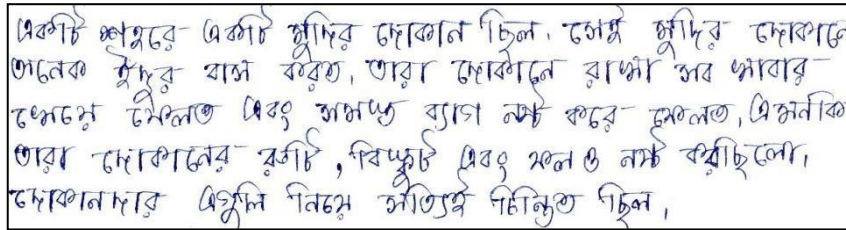 একটি শহরে একটি মুদির দোকান ছিল. সেই মুদির দোকানে
অনেক ইঁদুর বাস করত, তারা দোকানে রাখা সব খাবার
খেয়ে ফেলত এবং সমস্ত ব্যাগ নষ্ট করে ফেলত, এমনকি
তারা দোকানের রুটি, বিস্কুট এবং ফল ও নষ্ট করছিলো,
দোকানদার এগুলি নিয়ে সত্যিই চিন্তিত ছিল,